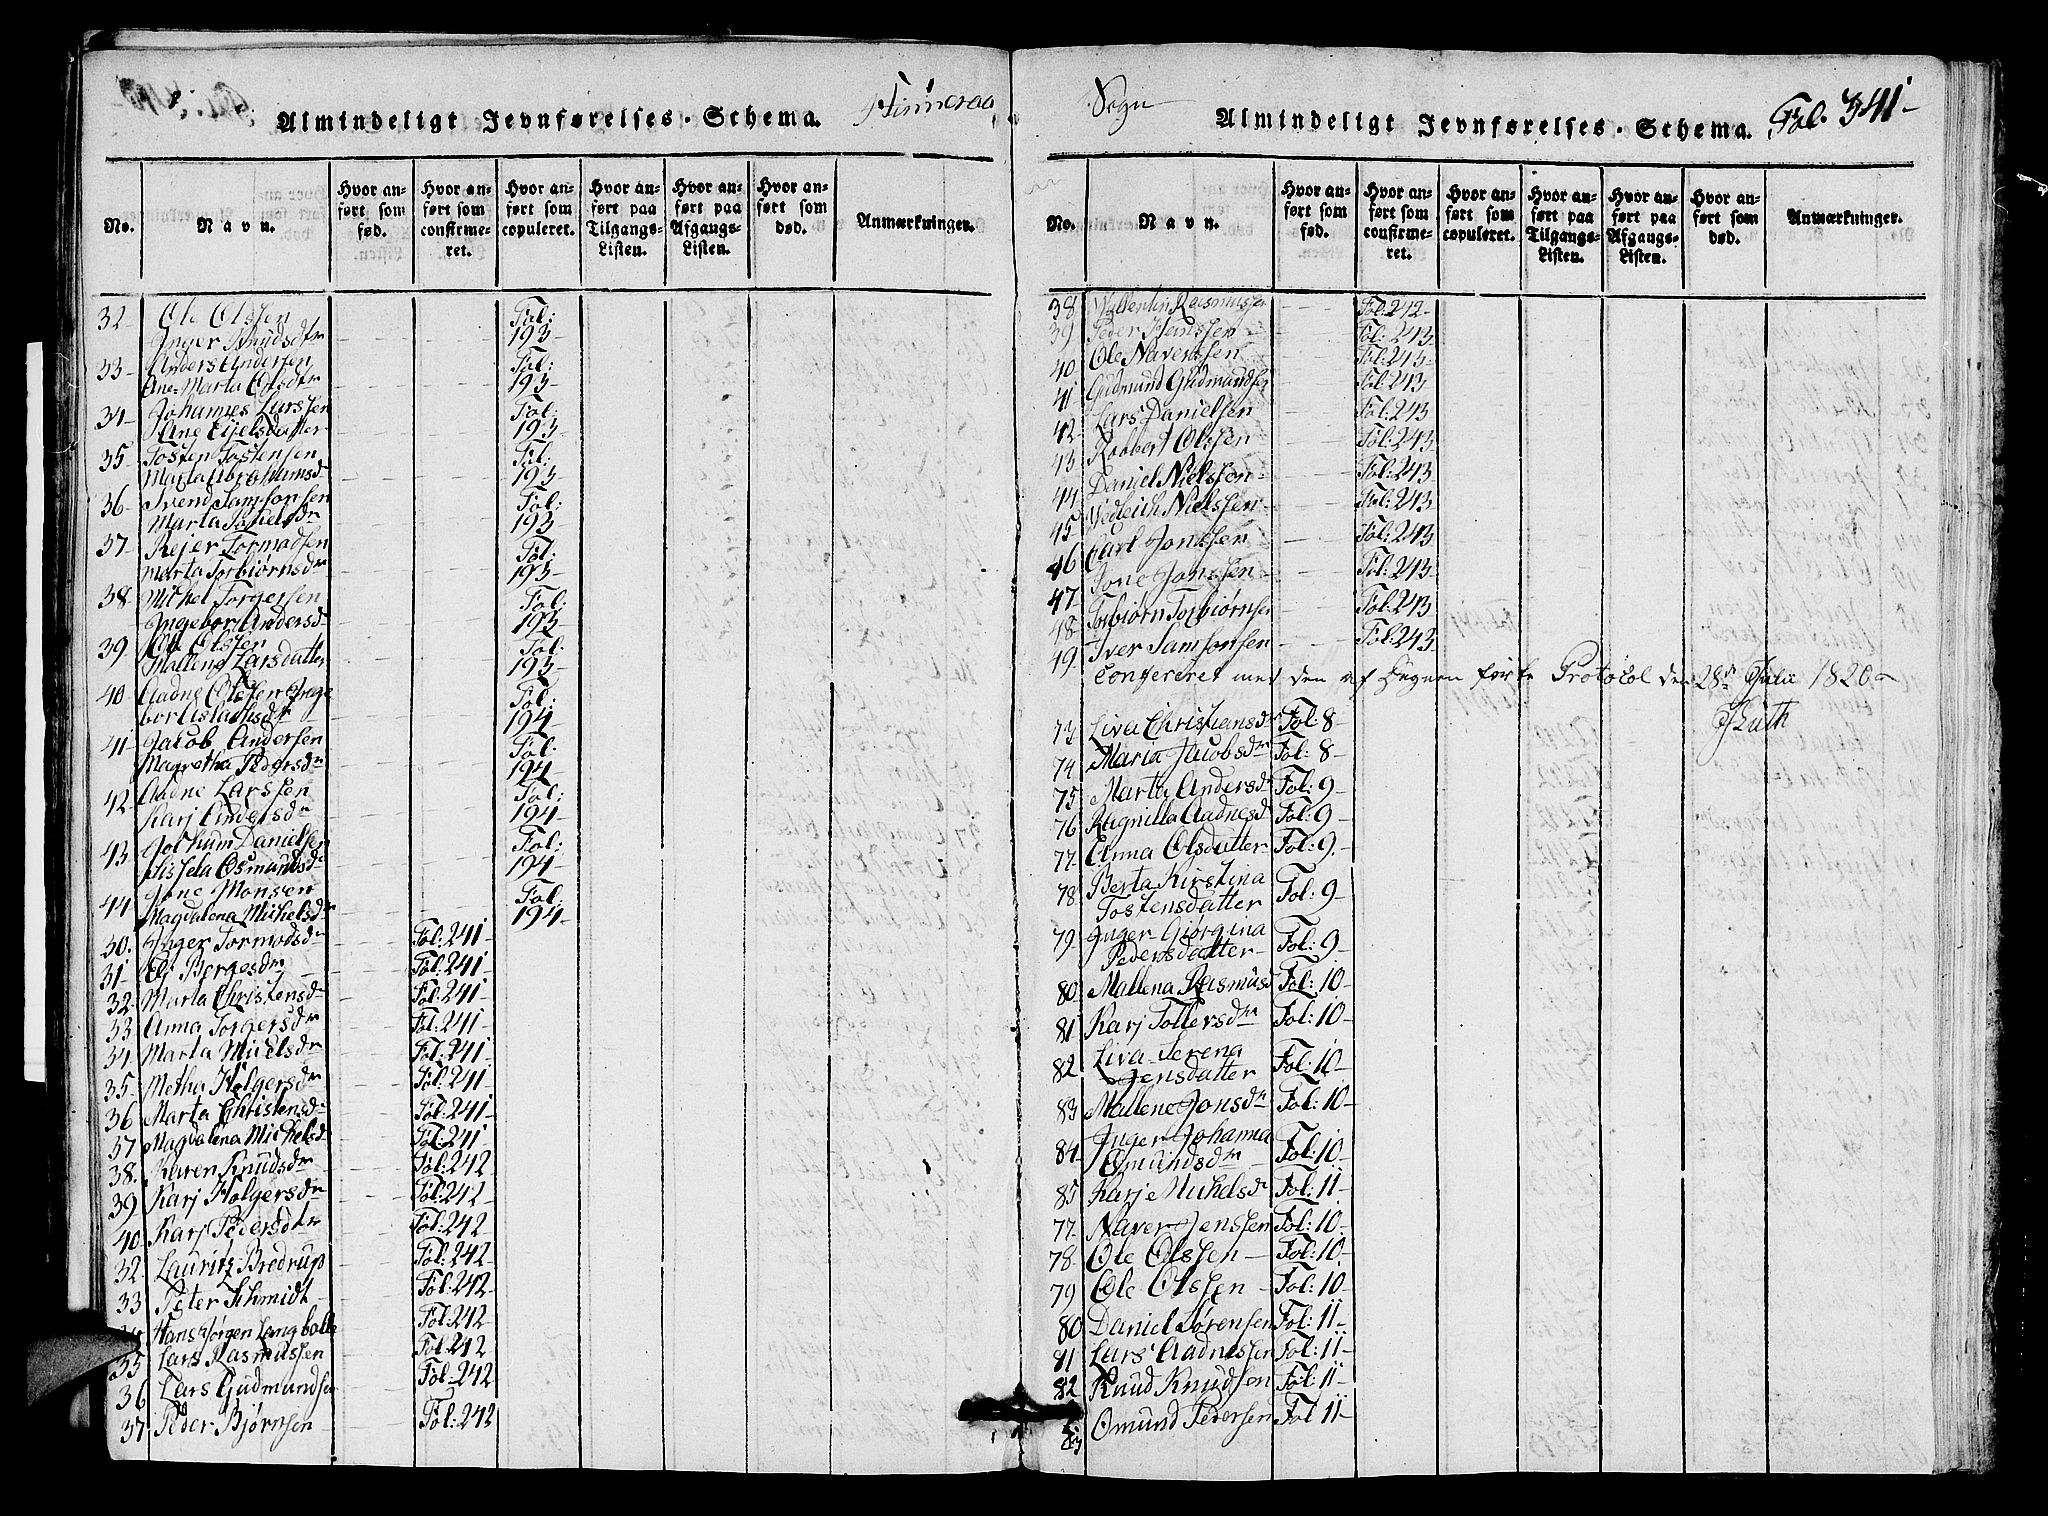 Almindeligt Jevnførelses-Schema.
No.
Navn.
Hvor anført som fød.
Hvor anført som confirmeret.
Hvor anført som copuleret.
Hvor anført paa Tilgangs-Listen.
Hvor anført paa Afgangs-Listen.
Hvor anført som død.
Anmærkninger.
32 Ole Olssen Fol:
Inger Knudsdtr 193
33 Anders Andersen Fol:
Ane Marta Olsdtr 193
34 Johannes Larssen Fol:
Ane Ejelsdatter 193
35 Tosten Tostensen Fol:
Marta Abrahamsd 193
36 Svend Samsonsen Fol:
Marta 193
37 Rejer Tormodsen Fol:
Marta Torbiørnsdr 193
38 Michel Torgersen Fol:
Ingebor Andersd 193
39 Ole Olssen Fol:
Mallena Larsdatter 193
40 Aadne Olssen Inge Fol:
bor Aslachsdr 194
41 Jacob Andersen Fol:
Magretha Pedersdr 194
42 Aadne Larssen Fol:
Karj Andersdr 194
43 Jochum Danielsen Fol:
Sissela Osmundsdr 194
44 Jone Monsen Fol:
Magdalena Michelsdr 194
30. Inger Tormodsdr Fol: 241
31 Eli Borgesdr Fol: 241
32 Marta Christensdr Fol: 241
33 Anna Torgersdr Fol: 241
34 Marta Michelsdr Fol: 241
35 Metha Holgersdr Fol: 241
36 Marta Christensdr Fol: 241
37 Magdalena Michelsd Fol: 241
38. Karen Knudsdr Fol: 242
39 Karj Holgersdr Fol: 242
40 Karj Pedersdtr Fol: 242
32 Lauritz Bredrup Fol: 242
33 Peter Schmidt Fol: 242
34 Hans Jørgen Langballe Fol: 242
35 Lars Rasmussen Fol: 242
36 Lars Gudmundsen Fol: 242
37 Peder Bjørnsen Fol: 242
Sogn
Almindeligt Jevnførelses-Schema.
Fol. 341
No.
Navn.
Hvor anført som fød.
Hvor anført som confirmeret.
Hvor anført som copuleret.
Hvor anført paa Tilgangs-Listen.
Hvor anført paa Afgangs-Listen.
Hvor anført som død.
Anmærkninger.
38 Wallentin Rasmussen Fol: 242
39 Peder Hanssen Fol: 243
40 Ole Naversen Fol: 243
41 Gudmund Gudmundsen Fol: 243
42 Lars Danielsen Fol: 243
43 Roobert Olssen Fol: 243
44 Daniel Nielssen Fol: 243
45 Vedleich Nielssen Fol: 243
46 Carl Jonssen Fol: 243
47 Jone Jonssen Fol: 243
48 Torbiørn Torbiørnsen Fol: 243
49 Iver Samsonsen Fol: 243
Confereret med den af Degnen førte Protocol den 28de Julii 1820
73 Liva Christiansdr Fol: 8
74 Maria Jacobsdr Fol: 8
75 Marta Andersdr Fol: 9
76 Ragnilla Aadnesd Fol: 9
77 Anna Olsdatter Fol: 9
78 Berta Kirstina
Tostensdatter Fol: 9
79 Inger Giørgina
Pedersdatter Fol: 9
80 Mallena Rasmusd Fol: 10
81 Karj Tollersdr Fol: 10
82 Liva Serena
Jensdatter Fol: 10
83 Mallene Jonsdr Fol: 10
84 Inger Johanna
Omundsdr Fol: 10
85 Karj Michelsdr Fol: 11
77 Naver Jenssen Fol: 10
78 Ole Olssen Fol: 10
79 Ole Olssen Fol: 10
80 Daniel Sørensen Fol: 11
81 Lars Aadnessen Fol: 11
82 Knud Knudsen Fol: 11
83 Omund Pedersen Fol 11